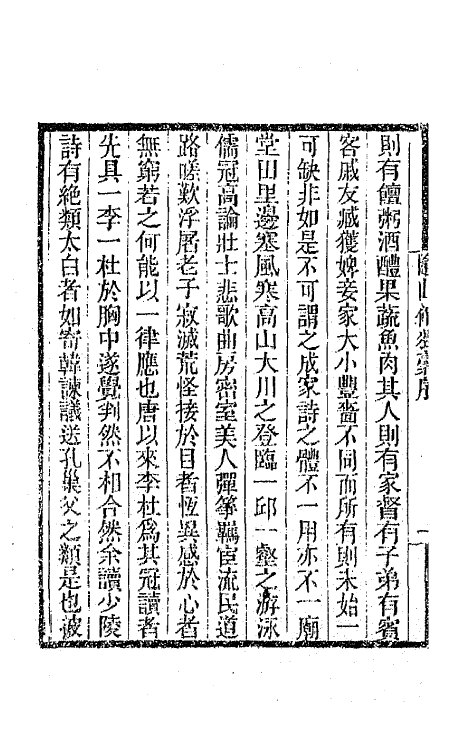 則有饘粥酒醴果蔬魚肉其人則有家督有子弟有賓
客戚友臧獲婢妾家大小豐嗇不同而所有則未始一
可缺非如是不可謂之成家詩之體不一用亦不一廟
堂田里邊塞風寒高山大川之登臨一邱一壑之游泳
儒冠高論壯士悲歌曲房密室美人彈箏羈宦流民道
路嗟歎浮屠老子寂滅荒怪接於目者恆異感於心者
無窮若之何能以一律應也唐以來李杜爲其冠讀者
先具一李一杜於胸中遂覺判然不相合然余讀少陵
詩有絶類太白者如寄韓諫議送孔巢父之類是也彼